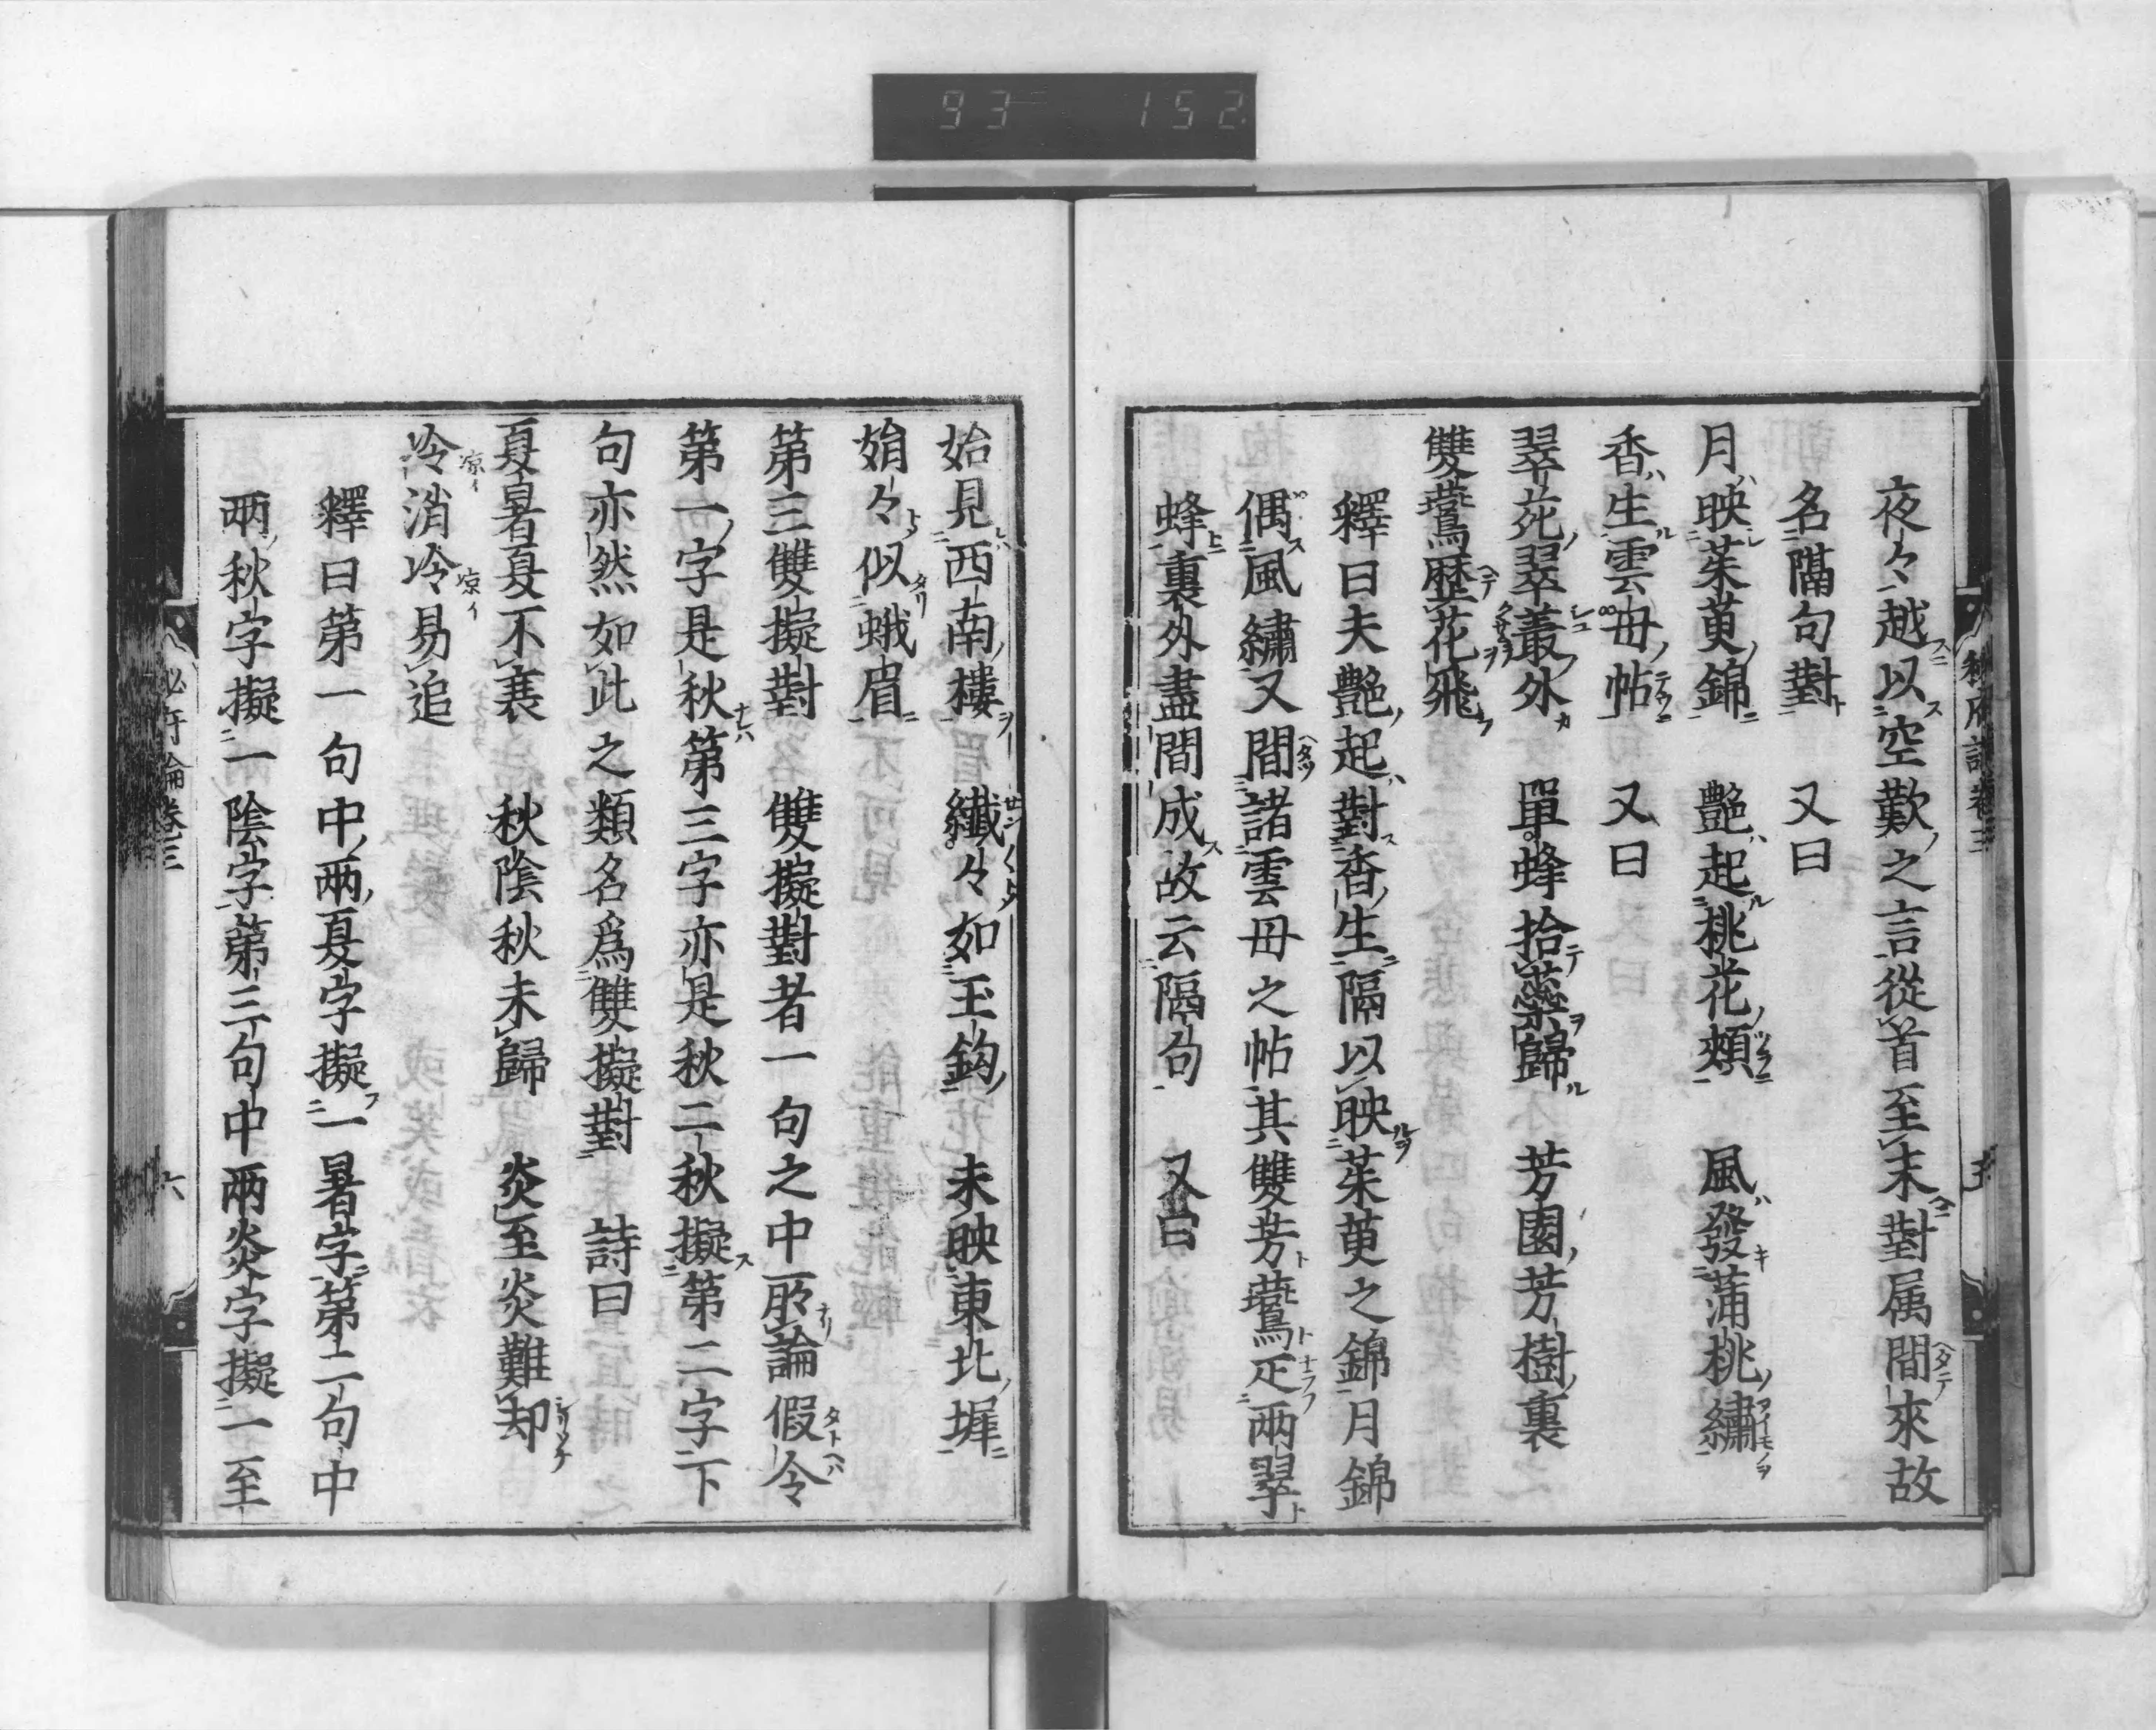 93 152
夜々越以空歎之言從首至末對属間來故
名隔句對　又曰
月映茱萸錦　艷起桃花頰　風發蒲桃繡
香生雲母帖　又曰
翠苑翠叢外　單蜂拾蘂歸　芳園芳樹裏
雙鷰歴花飛
釋曰夫艷起對香生隔以映茱萸之錦月錦
偶風繡又間諸雲母之帖其雙芳鷰疋兩翠
蜂裏外盡間成故云隔句　又曰
始見西南樓　纖々如玉鈎　未映東北墀
娟々似蛾眉
第三雙擬對　雙擬對者一句之中所論假令
第一字是秋第三字亦是秋二秋擬第二字下
句亦然如此之類名爲雙擬對　詩曰
夏暑夏不衰　秋陰秋未歸　炎至炎難却
冷消冷易追
釋曰第一句中兩夏字擬一暑字第二句中
兩秋字擬一陰字第三句中兩炎字擬一至